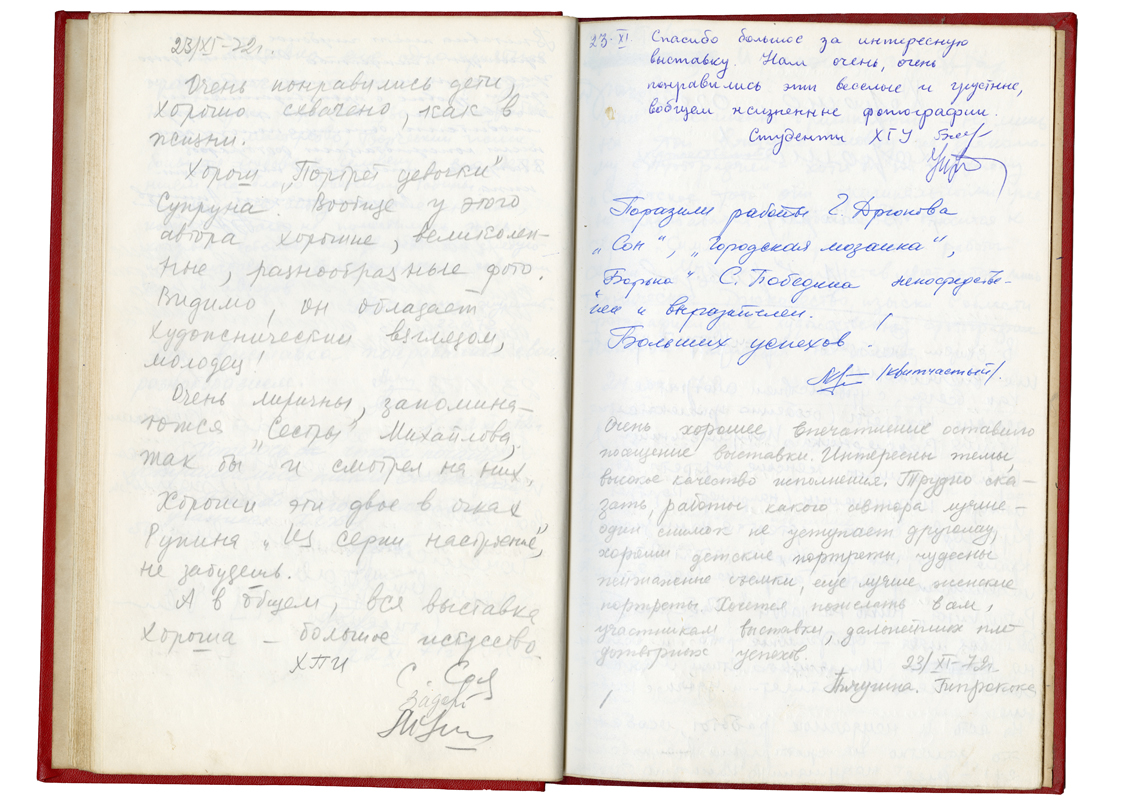 23/XI-72г.
Очень понравились дети,
хорошо схвачено, как в
жизни.
Хорош „Портрет девочки"
Супруна. Вообще у этого
автора хорошие, великолеп-
ные, разнообразные фото.
Видимо, он обладает
художническим взглядом,
молодец!
Очень лиричны, запомина-
ются „Сестры" Михайлова,
так бы и смотрел на них.
Хороши эти двое в очках
Рупина „Из серии настроение",
не забудешь.
А в общем, вся выставка
хороша – большое искусство.
ХПИ
23-XI. Спасибо большое за интересную
выставку. Нам очень, очень
понравились эти веселые и грустные,
вобщем жизненные фотографии.
Студенты ХГУ
Поразили работы Г. Дрюкова
„Сон", „Городская мозаика",
„Борька" С. Победина непосредстве-
нен и выразителен.
Больших успехов!
/Квитчастый/
Очень хорошее впечатление оставило
посещение выставки. Интересны темы,
высокое качество исполнения. Трудно ска-
зать, работы какого автора лучше –
один снимок не уступает другому,
хороши детские портреты, чудесны
пейзажные съемки, еще лучше женские
портреты. Хочется пожелать вам,
участникам выставки, дальнейших пло-
дотворных успехов.
23/XI-72г.
Гипрококс